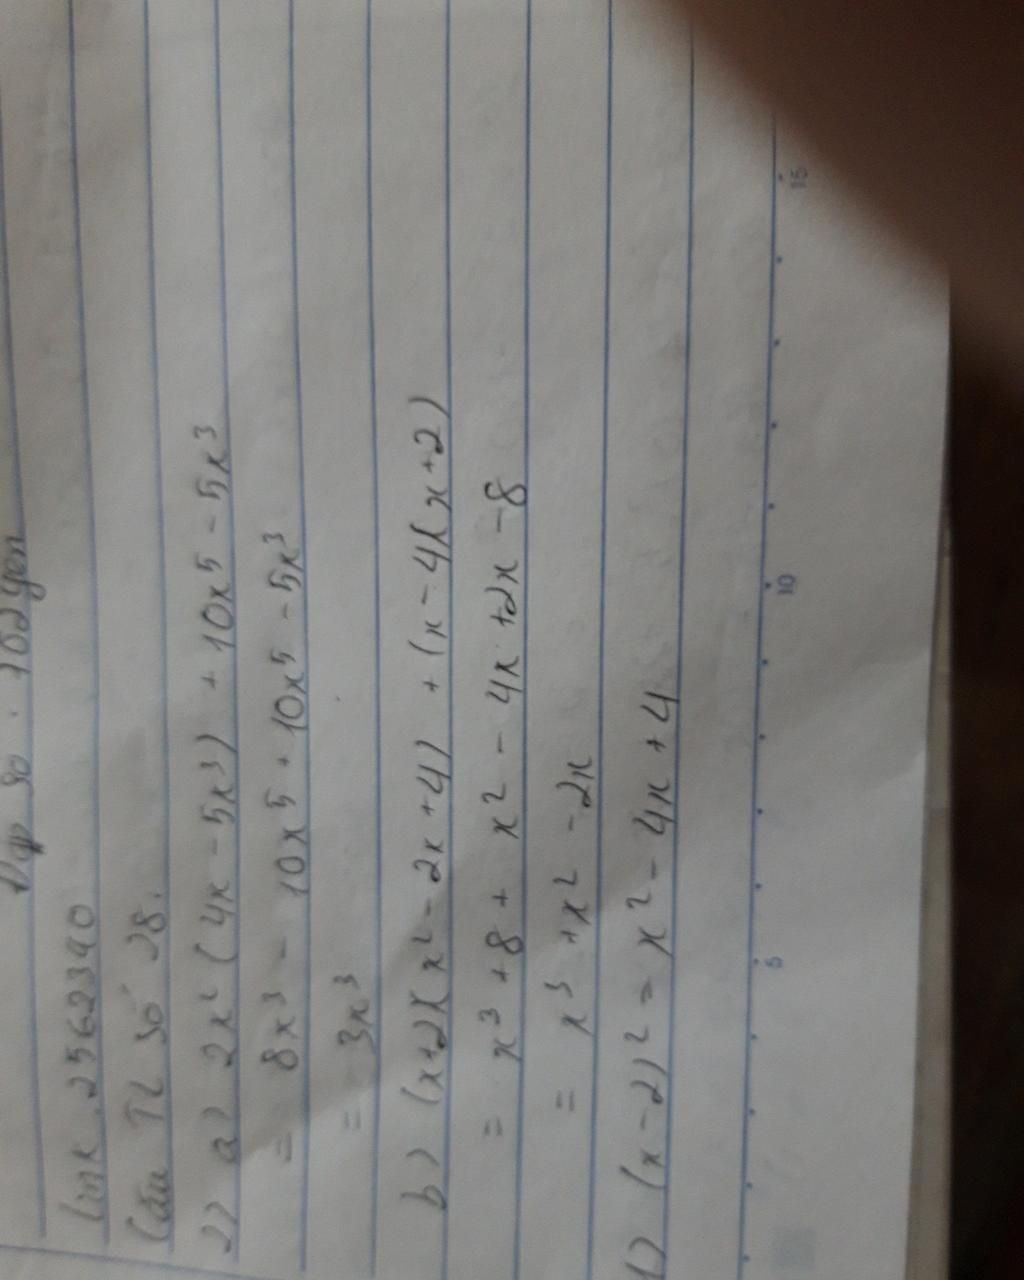 link 25662390
Câu TL số 28.
2) a) 2x² (4x - 5x³) + 10x⁵ - 5x³
= 8x³ - 10x⁵ + 10x⁵ - 5x³
= 3x³
b) (x+2)(x² - 2x + 4) + (x - 4)(x + 2)
= x³ + 8 + x² - 4x + 2x - 8
= x³ + x² - 2x
1) (x - 2)² = x² - 4x + 4
5 10 15